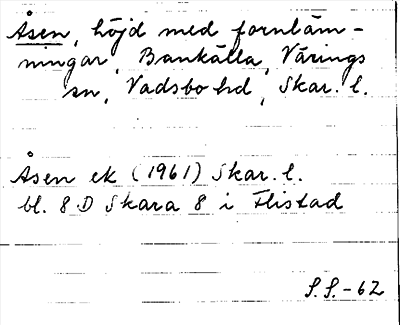 Åsen, höjd med fornläm-
ningar, Bankälla, Värings
sn, Vadsbo hd, Skar. l.
Åsen ek (1961) Skar. l.
bl. 8 D Skara 8 i Flistad
S.S.-62